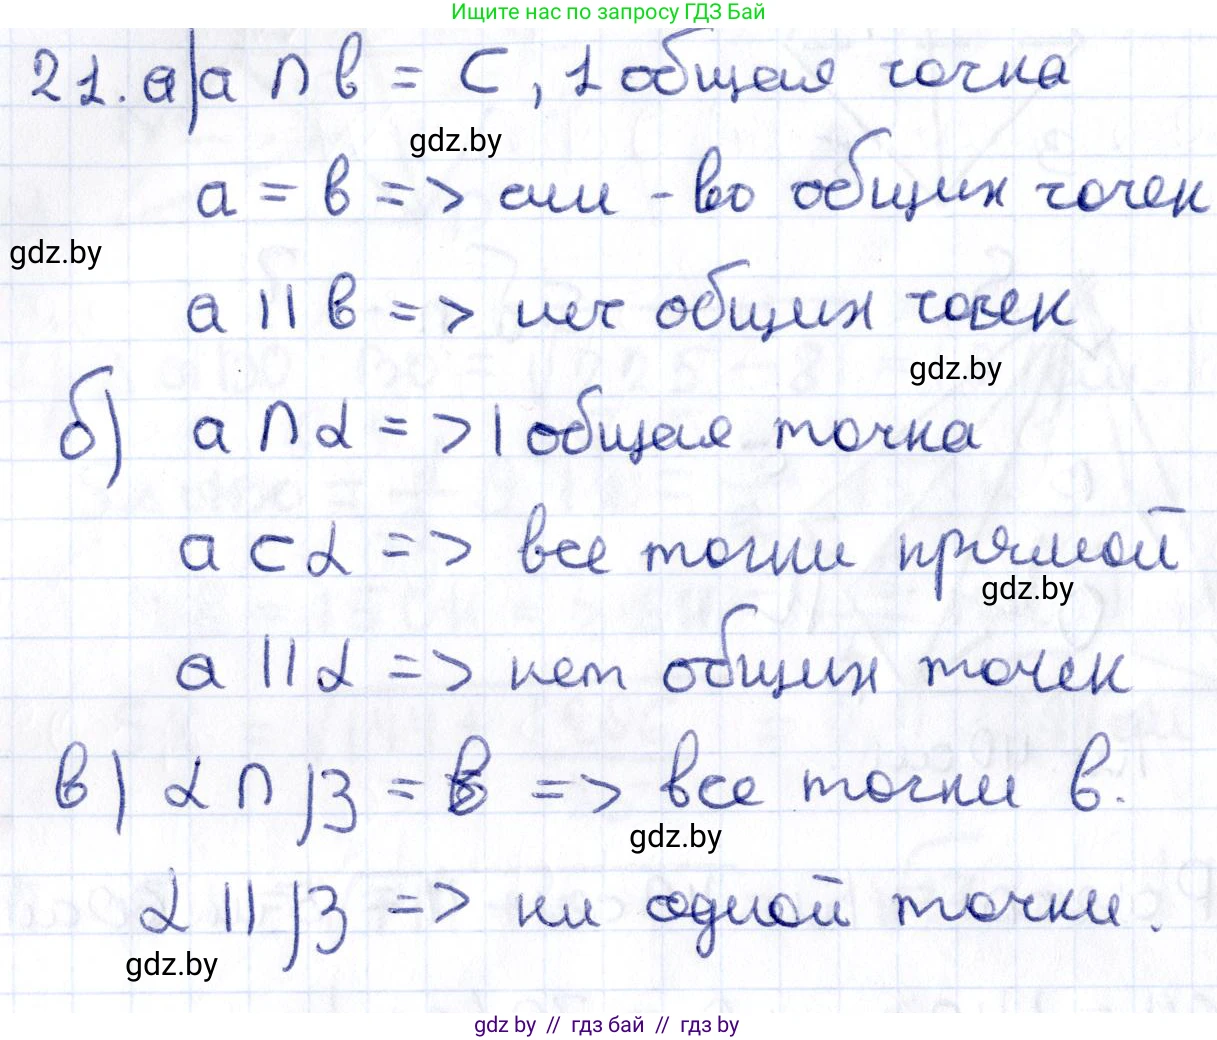 Ищите нас по запросу ГДЗ Бай
21. а) a ∩ b = C, 1 общая точка
gdz.by
a = b => мн-во общих точек
gdz.by
a || b => нет общих точек
gdz.by
б) a ∩ α => 1 общая точка
a ⊂ α => все точки прямой
gdz.by
a || α => нет общих точек
в) α ∩ β = b => все точки b.
gdz.by
α || β => ни одной точки.
gdz.by
gdz by // гдз бай // гдз by